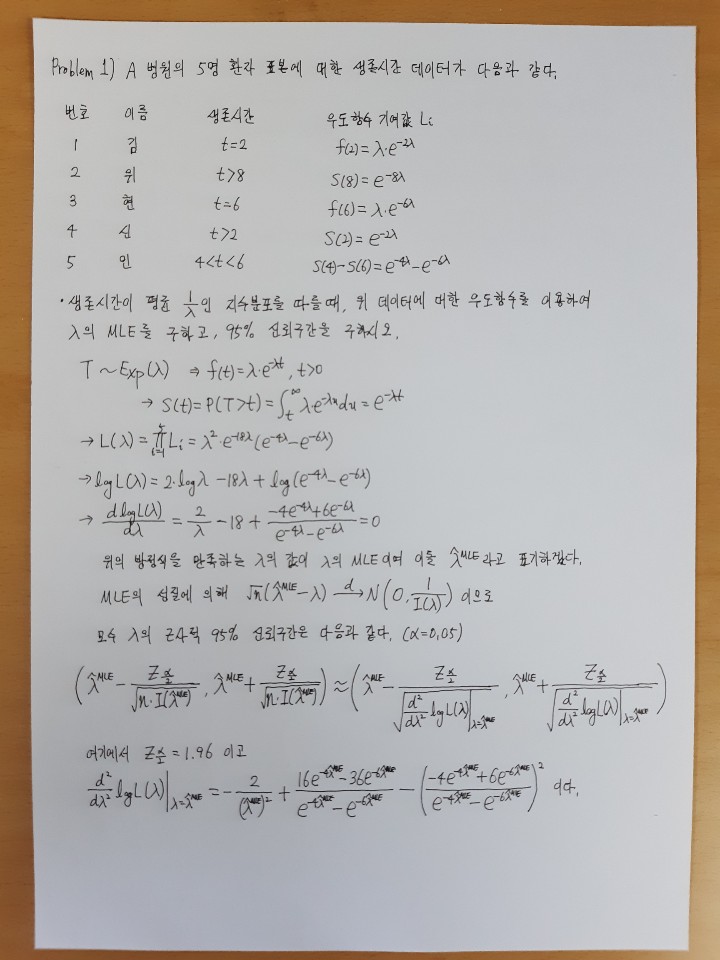 Problem 1) A 병원의 5명 환자 표본에 대한 생존시간 데이터가 다음과 같다.
번호 이름 생존시간 우도함수 기여값 Li
1 김 t=2 f(2)=λ·e^{-2λ}
2 위 t>8 S(8)=e^{-8λ}
3 현 t=6 f(6)=λ·e^{-6λ}
4 신 t>2 S(2)=e^{-2λ}
5 인 4<t<6 S(4)-S(6)=e^{-4λ}-e^{-6λ}
• 생존시간이 평균 1/λ인 지수분포를 따를 때, 위 데이터에 대한 우도함수를 이용하여
λ의 MLE를 구하고, 95% 신뢰구간을 구하시오.
T~Exp(λ) ⇒ f(t)=λ·e^{-λt}, t>0
→ S(t)=P(T>t)=∫_t^∞ λ·e^{-λu}du=e^{-λt}
→ L(λ)=∏_{i=1}^5 Li=λ²·e^{-18λ}(e^{-4λ}-e^{-6λ})
→ logL(λ)=2·logλ-18λ+log(e^{-4λ}-e^{-6λ})
→ dlogL(λ)/dλ=2/λ-18+(-4e^{-4λ}+6e^{-6λ})/(e^{-4λ}-e^{-6λ})=0
위의 방정식을 만족하는 λ의 값이 λ의 MLE이며 이를 λ̂^{MLE}라고 표기하겠다.
MLE의 성질에 의해 √n(λ̂^{MLE}-λ) →^d N(0, 1/I(λ)) 이므로
모수 λ의 근사적 95% 신뢰구간은 다음과 같다. (α=0.05)
(λ̂^{MLE}-Z_{α/2}/√(n·I(λ̂^{MLE})), λ̂^{MLE}+Z_{α/2}/√(n·I(λ̂^{MLE})))≈(λ̂^{MLE}-Z_{α/2}/√(d²/dλ² logL(λ)|_{λ=λ̂^{MLE}}), λ̂^{MLE}+Z_{α/2}/√(d²/dλ² logL(λ)|_{λ=λ̂^{MLE}}))
여기에서 Z_{α/2}=1.96 이고
d²/dλ² logL(λ)|_{λ=λ̂^{MLE}}=-2/(λ̂^{MLE})²+(16e^{-4λ̂^{MLE}}-36e^{-6λ̂^{MLE}})/(e^{-4λ̂^{MLE}}-e^{-6λ̂^{MLE}})-((-4e^{-4λ̂^{MLE}}+6e^{-6λ̂^{MLE}})/(e^{-4λ̂^{MLE}}-e^{-6λ̂^{MLE}}))² 이다.